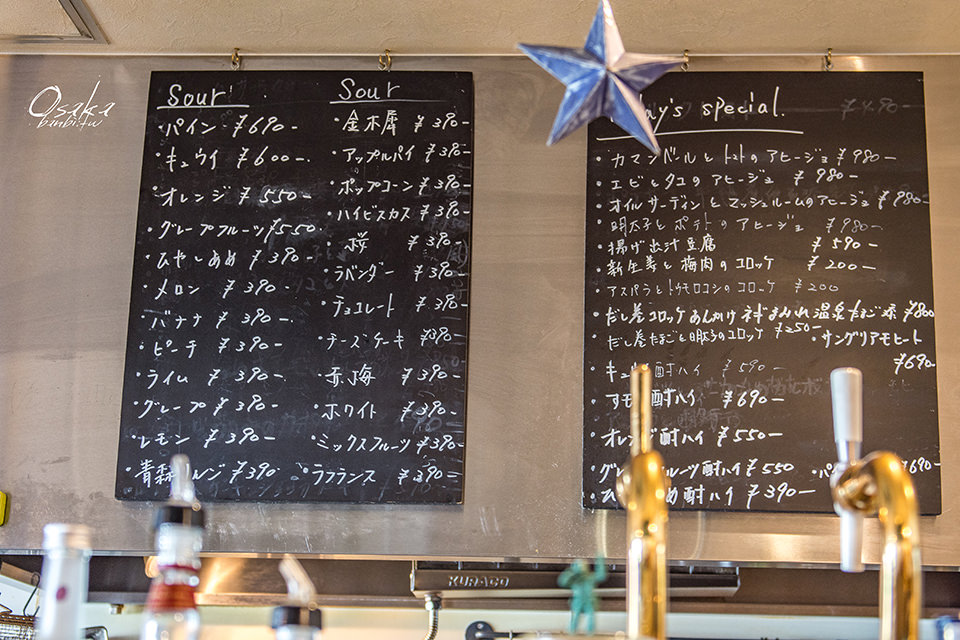 Osaka
banbi.tw
Sour
・パイン ¥690-
・キュウイ ¥600-
・オレンジ ¥550-
・グレープフルーツ ¥550-
・ひやしあめ ¥390-
・メロン ¥390-
・バナナ ¥390-
・ピーチ ¥390-
・ライム ¥390-
・グレープ ¥390-
・レモン ¥390-
・青森 ンジ ¥390-
Sour
・金木犀 ¥390-
・アップルパイ ¥390-
・ポップコーン ¥390-
・ハイビスカス ¥390-
・桜 ¥390-
・ラベンダー ¥390-
・チョコレート ¥390-
・チーズケーキ ¥390-
・ホワイト ¥390-
・ミックスフルーツ ¥390-
・ラフランス ¥390-
day's special.
・カマンベールとトマトのアヒージョ ¥980-
・エビとタコのアヒージョ ¥980-
・オイルサーディンとマッシュルームのアヒージョ ¥980-
・明太子とポテトのアヒージョ ¥980-
・揚げ出汁豆腐 ¥590-
・新生姜と梅肉のコロッケ ¥200-
・アスパラとトウモロコシのコロッケ ¥200
・だし巻コロッケあんかけ 温泉たまご ¥800
・だし巻たまごと明太子のコロッケ ¥250-
・サングリアモヒート
¥690-
・キュ 酎ハイ ¥590-
・すモモ酎ハイ ¥690-
・オレンジ酎ハイ ¥550-
・グレ フルーツ酎ハイ ¥550
¥690-
・ひ め酎ハイ ¥390-
KURACO